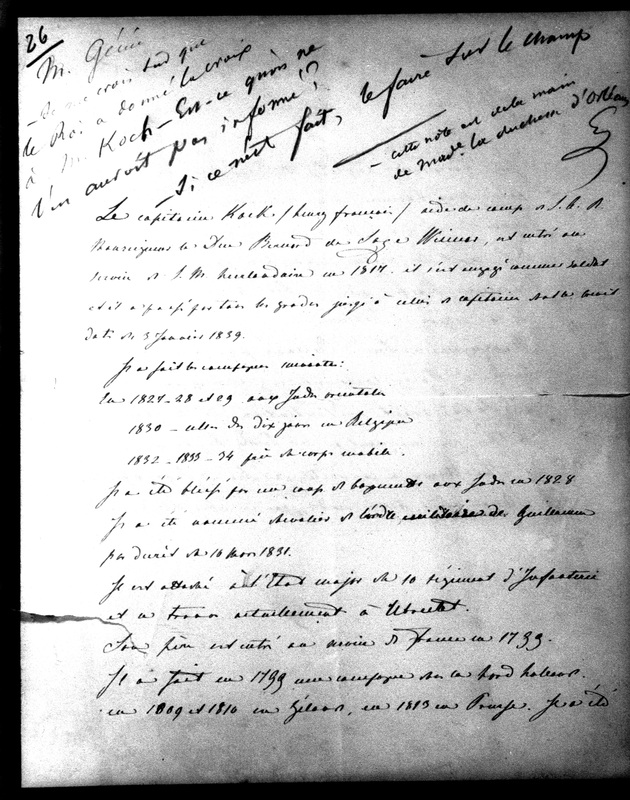 26
M. Génie
- Je me crois sûr que
le Roi a donné la croix
à M. Koch - Est-ce qu'on ne
l'en auroit pas informé!?
- Si ce n'est fait, le faire sur le champ
- cette note est de la main
de Made. la duchesse d'Orléans
Le capitaine Kock / henry francois / aide de camp de S. A. R.
le Duc Bernard de Saxe Weimar, est entré au
service de S. M. Neerlandaise en 1817. il s'est engagé comme soldat
et il a passé par tous les grades jusqu'à celui de capitaine dont le brevet
date du 3 Janvier 1839.
Il a fait les campagnes suivantes:
En 1827-28 et 29 aux Indes orientales
1830 - celle des dix jours en Belgique
1832 - 1833 - 34 du corps mobile.
Il a été blessé par un coup de bayonette aux Indes en 1828
Il a été nommé chevalier de l'ordre militaire de Guillaume
par décret du 10 Mars 1831.
Il est attaché à l'Etat major du 10 régiment d'Infanterie
et se trouve actuellement à Utrecht.
Son père est entré au service de france en 1799.
Il a fait en 1799 une campagne dans la Nord hollande.
en 1809 et 1810 en Zélande, en 1813 en Prusse. Il a été